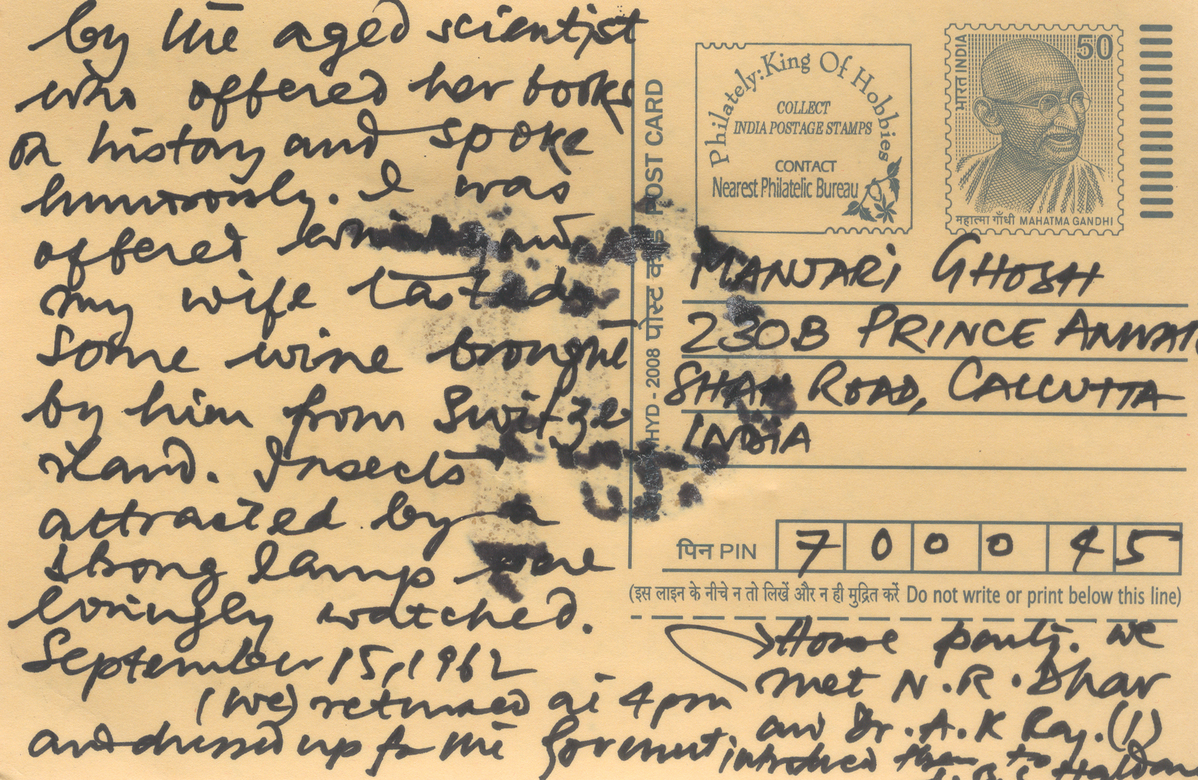 by the aged scientist
who offered her books
on history and spoke
humorously. I was
offered whisky and
my wife tasted
some wine brought
by him from Switze
rland. Insects
attracted by a
strong lamp were
lovingly watched.
September 15, 1962
(We) returned at 4 pm
and dressed up for the Government
House party. We
met N.R. Dhar
and Dr. A.K Ray. (I)
introduced them to
POST CARD
पोस्ट कार्ड
HYD - 2008
Philately: King Of Hobbies
COLLECT
INDIA POSTAGE STAMPS
CONTACT
Nearest Philatelic Bureau
भारत INDIA
50
महात्मा गाँधी MAHATMA GANDHI
MANJARI GHOSH
230B PRINCE ANWAR
SHAH ROAD, CALCUTTA
INDIA
पिन PIN 7 0 0 0 4 5
(इस लाइन के नीचे न तो लिखें और न ही मुद्रित करें Do not write or print below this line)